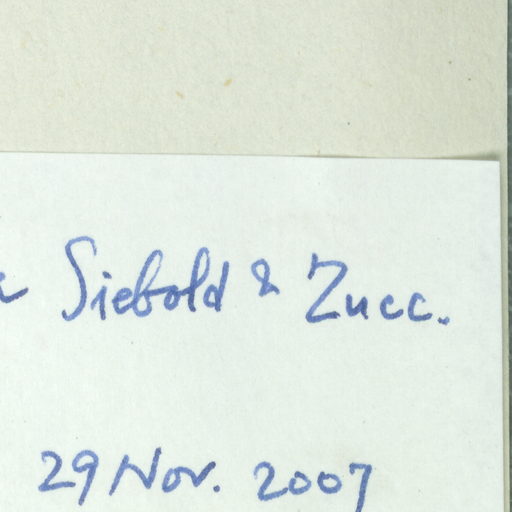 Siebold & Zucc.
29 Nov. 2007